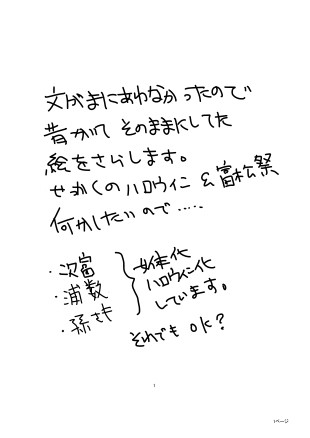 文がまにあわなかったので
昔かいて そのままにしてた
絵をさらします。
せっかくのハロウィン & 富松祭
何かしたいので……
・次富
・浦数
・孫さも
女体化
ハロウィン化
しています。
それでも OK?
1
1ページ